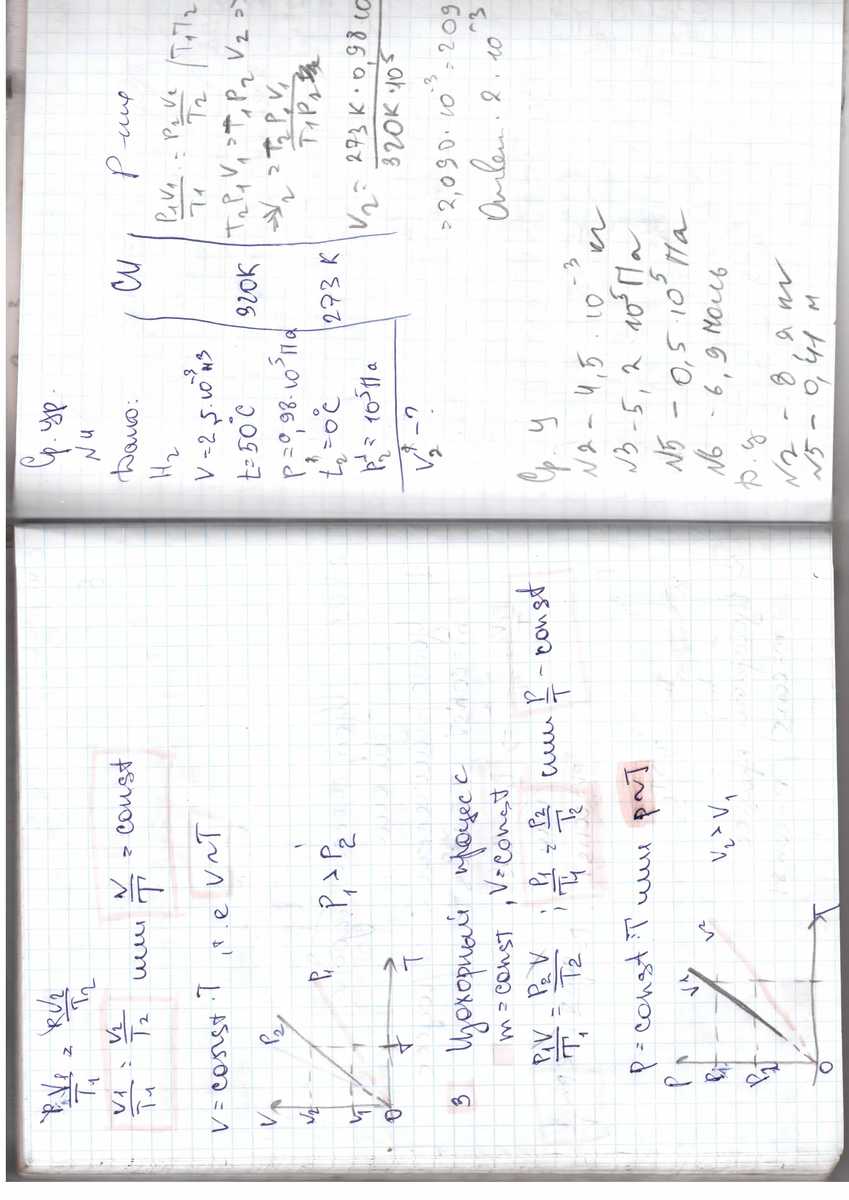 P₁V₁/T₁ = P₂V₂/T₂
V₁/T₁ = V₂/T₂ или V/T = const
V = const · T, т.е V ~ T
V
V₂
V₁
0
P₂
P₁
T
P₁ > P₂
3 Изохорный процесс
m = const, V = const
P₁V/T₁ = P₂V/T₂ ; P₁/T₁ = P₂/T₂ или P/T - const
P = const · T или p ~ T
P
P₁
P₂
0
V₁
V₂
T
V₂ > V₁
Ср. ур.
N4
Дано:
H₂
V = 2,5·10⁻³ м3
t = 50°C
P = 0,98·10⁵ Па
t₂ = 0°C
P₂ = 10⁵ Па
V₂ - ?
СИ
320K
273 K
Р-ние
P₁V₁/T₁ = P₂V₂/T₂ | T₁T₂
T₂P₁V₁ = T₁P₂V₂ =>
=> V₂ = T₂P₁V₁/T₁P₂
V₂ = 273 K · 0,98·10/320K·10⁵
= 2,090·10⁻³ = 209
Ответ: 2·10⁻³
Ср. У
N2 - 4,5·10⁻³ кг
N3 - 5,2 10⁵ Па
N5 - 0,5·10⁵ Па
N6 - 6,9 моль
Д.з
N2 - 8,2 кг
N5 - 0,41 м